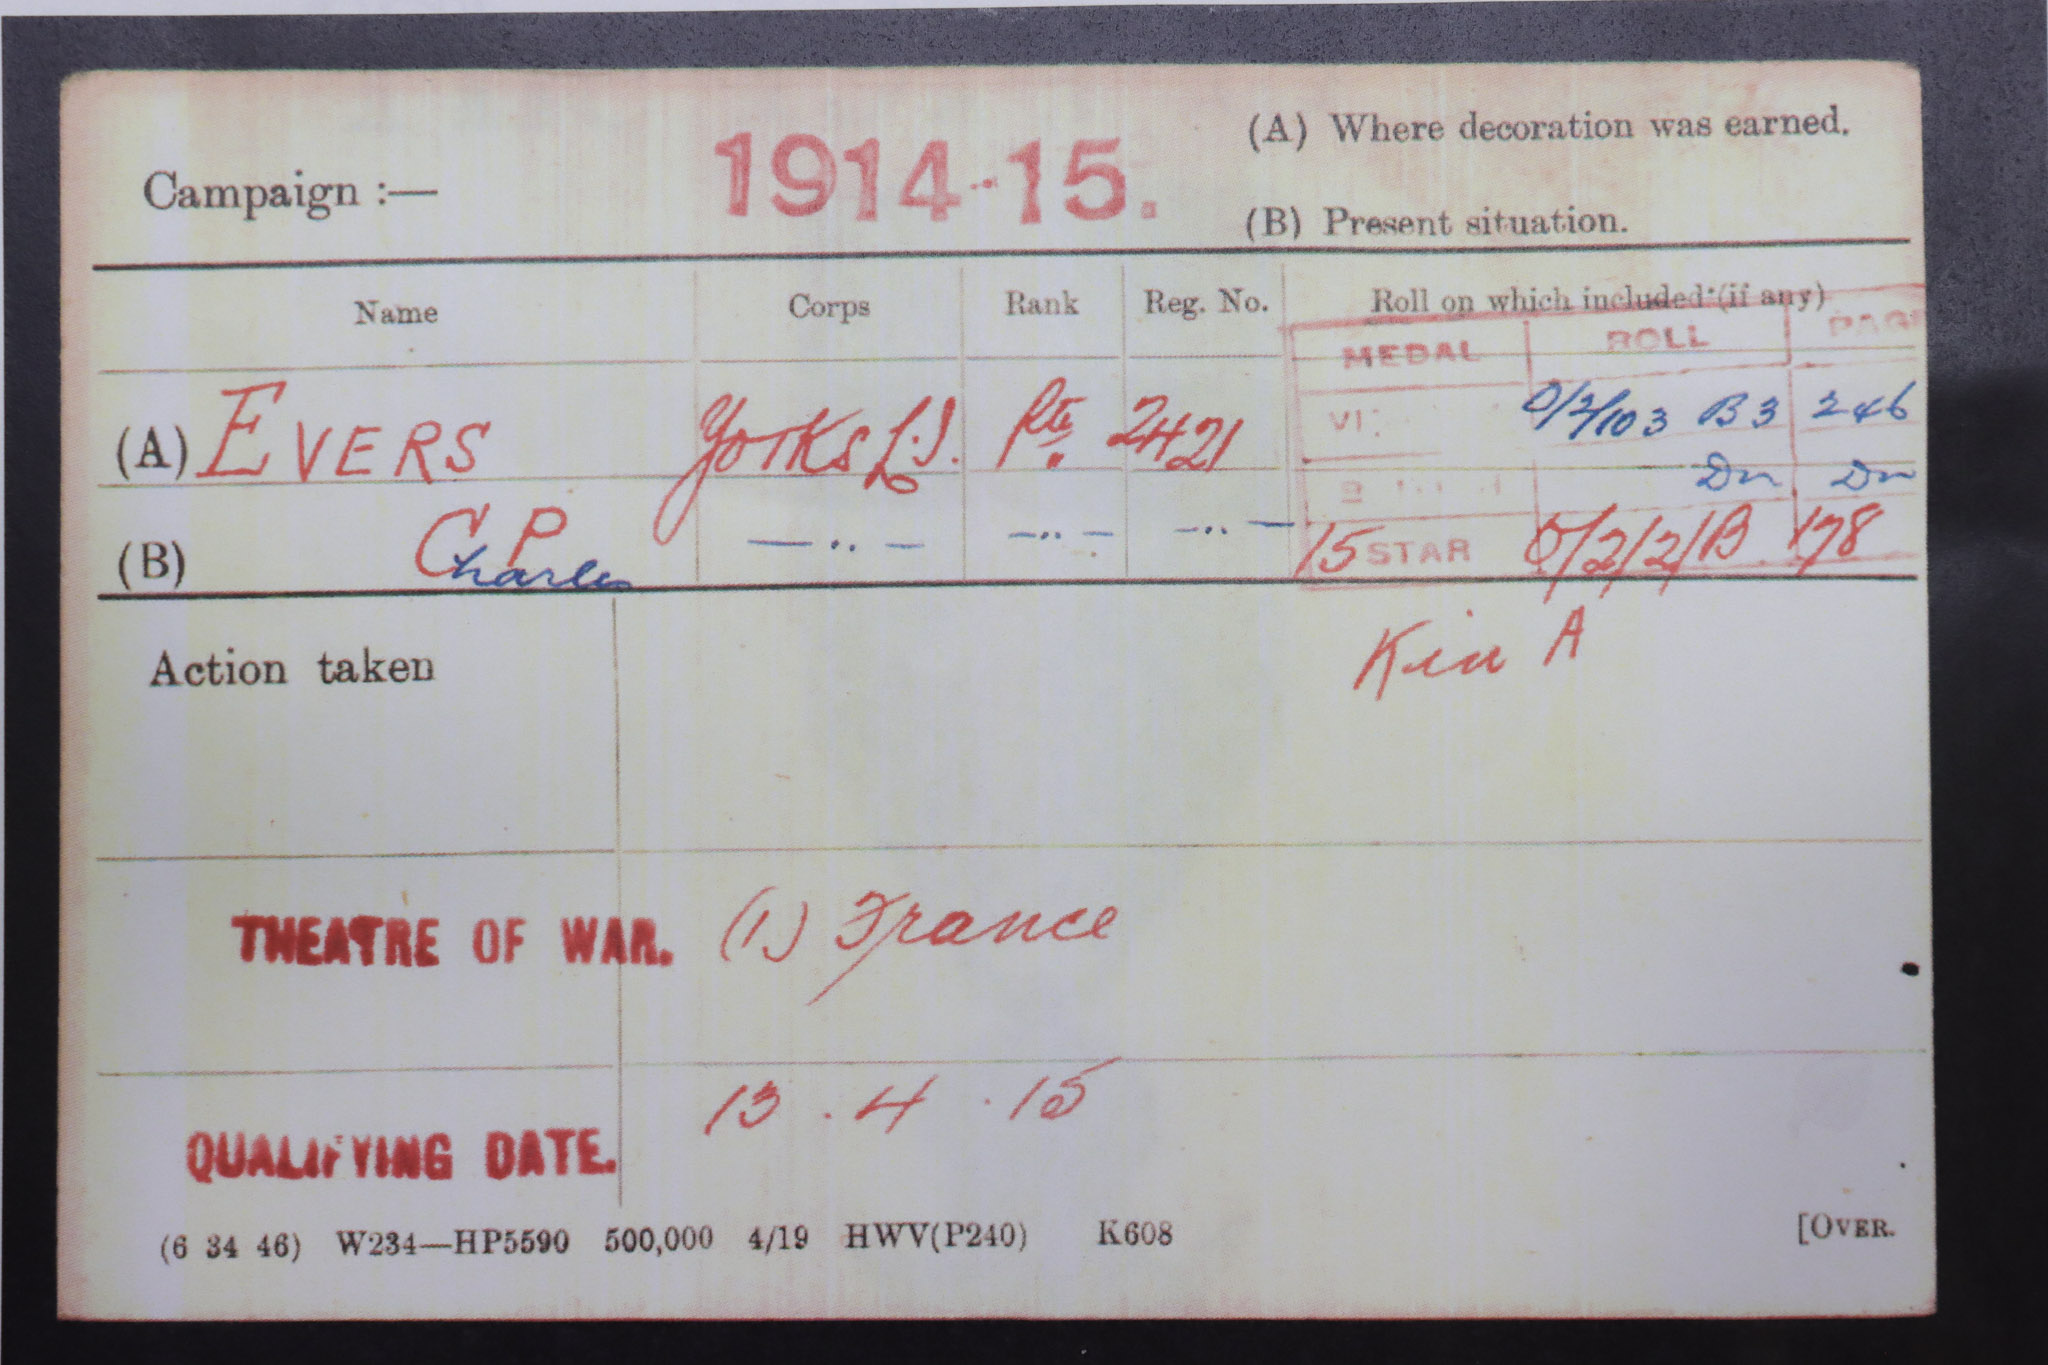 Campaign :— 1914-15. (A) Where decoration was earned.
(B) Present situation.
Name Corps Rank Reg. No. Roll on which included (if any)
MEDAL ROLL PAGE
(A) EVERS Yorks L.I. Pte. 2421 VI O/2/103 B3 246
Do Do
(B) C P Charles —..— —..— —..— 15 STAR O/2/2/B 178
Action taken K in A
THEATRE OF WAR. (1) France
QUALIFYING DATE. 13.4.15
(6 34 46) W234—HP5590 500,000 4/19 HWV(P240) K608 [OVER.